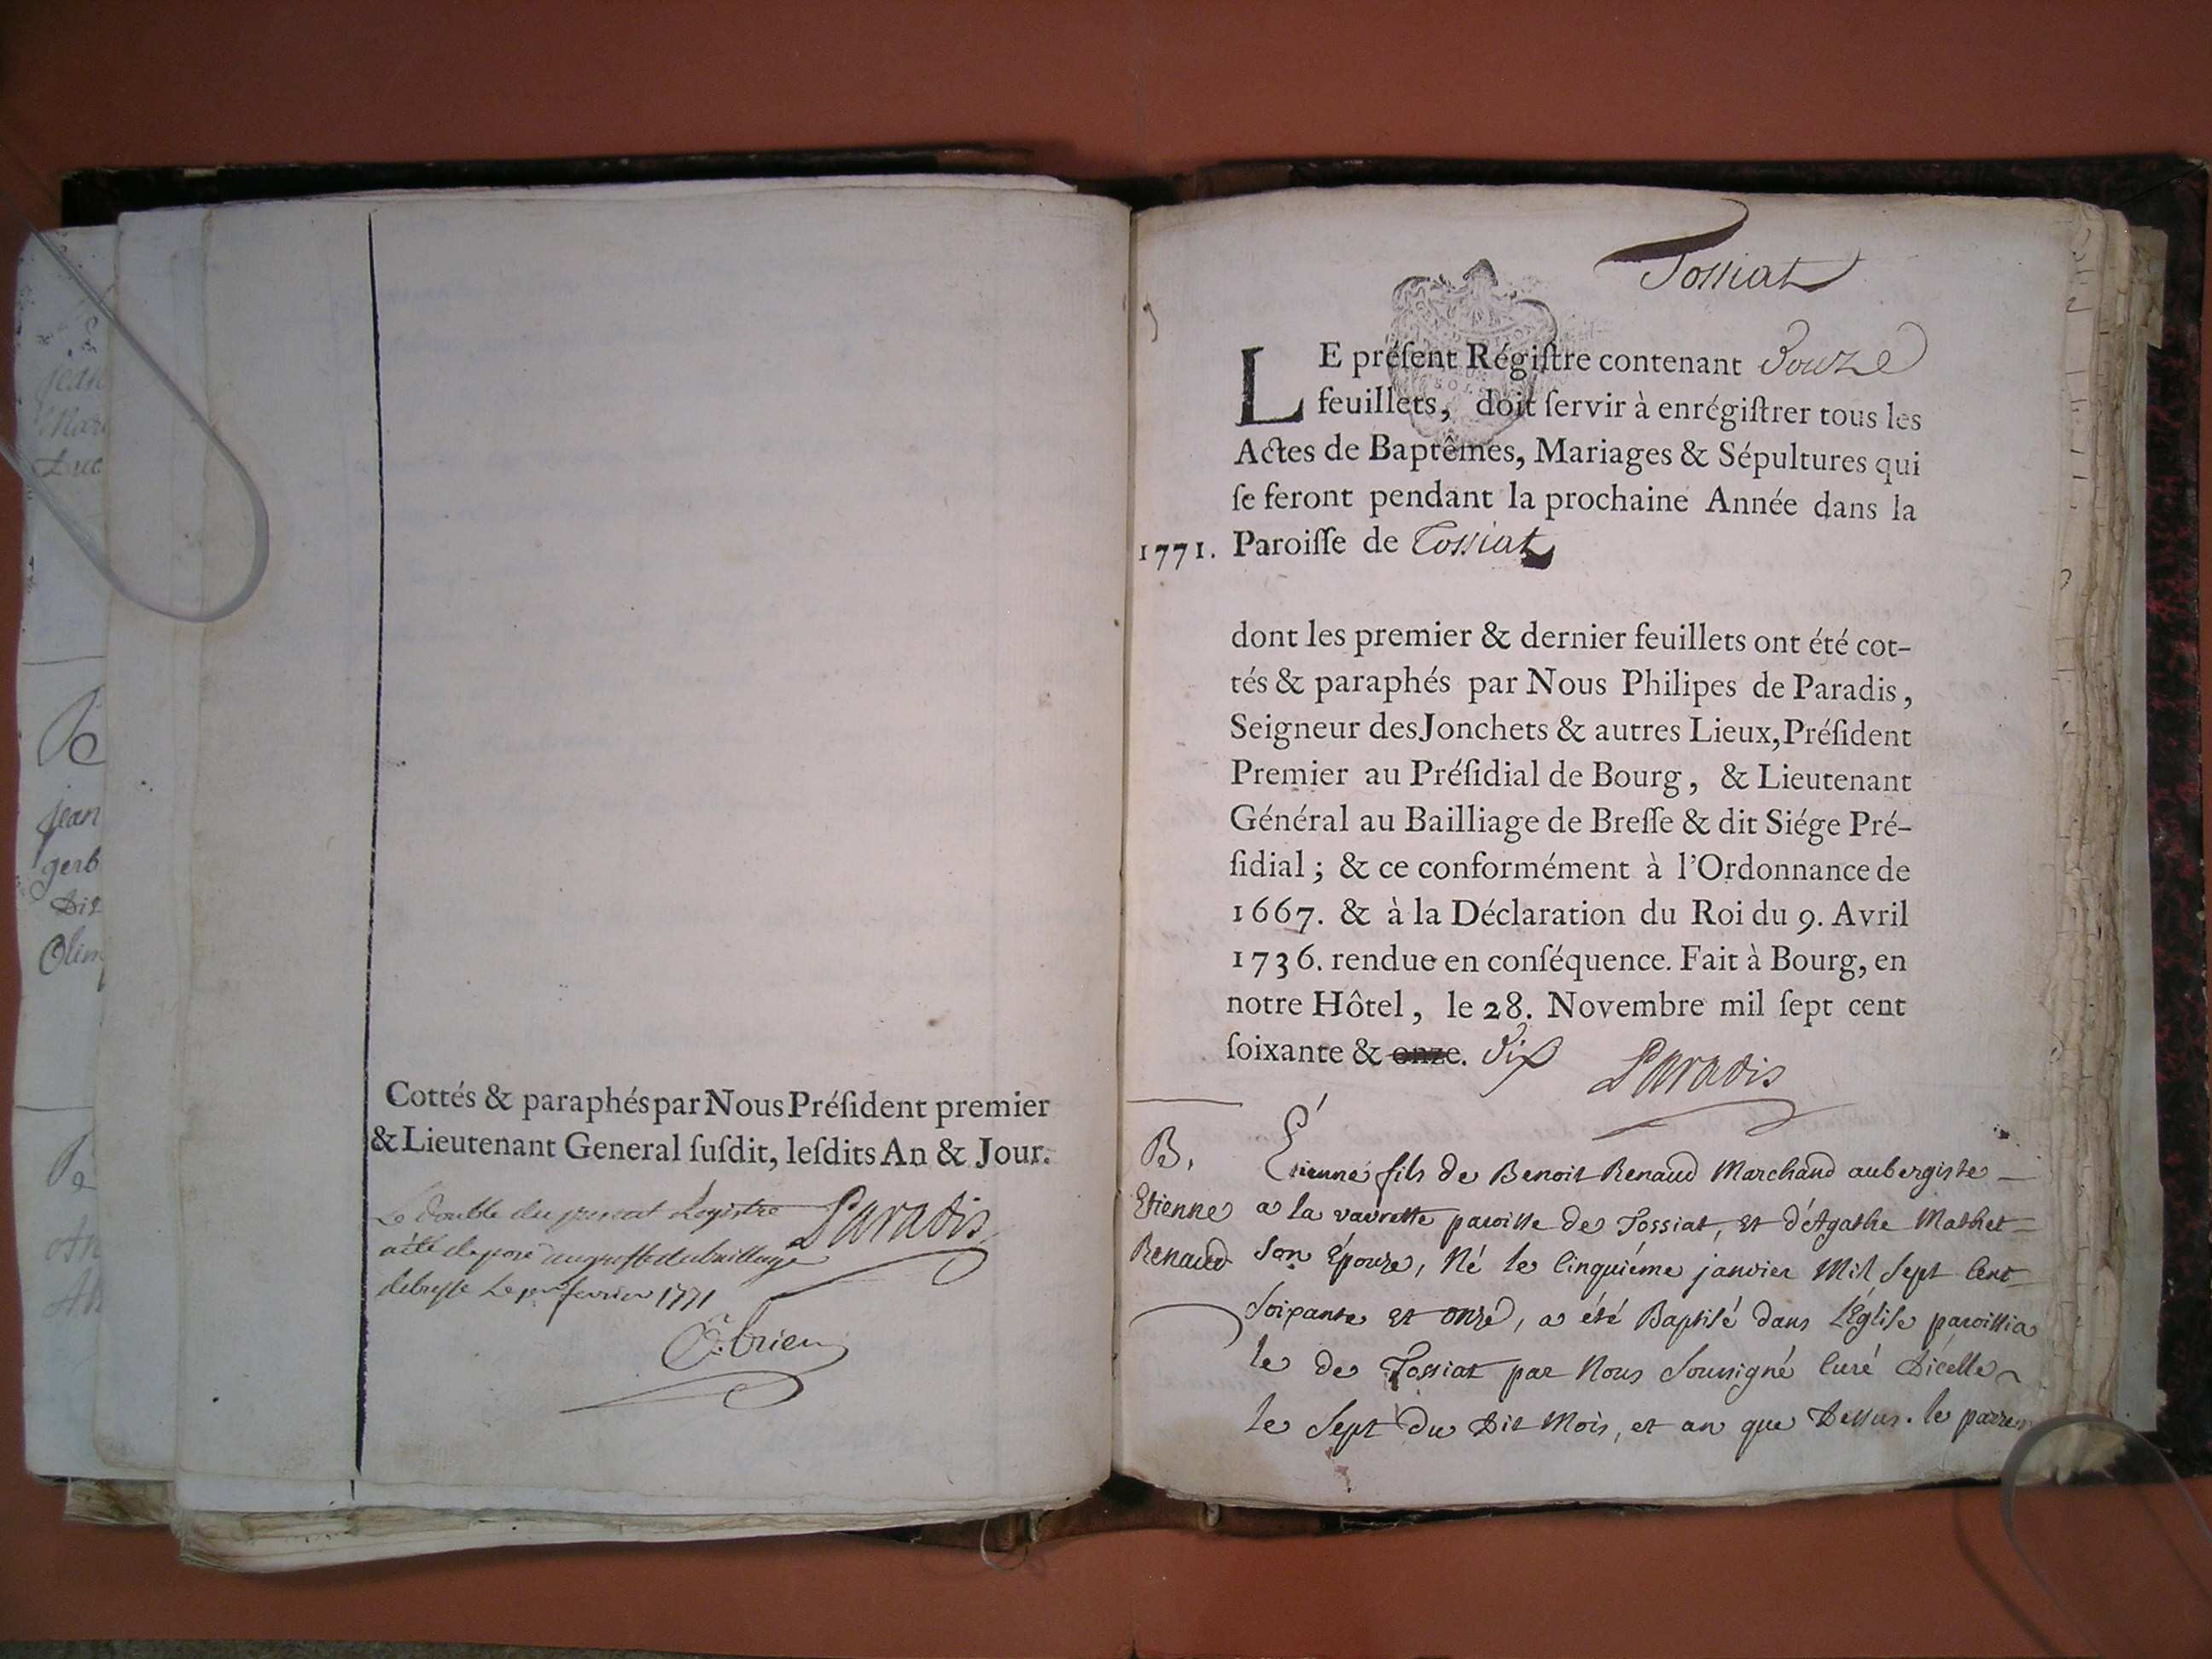 Cottés & paraphés par Nous Président premier
& Lieutenant General ſuſdit, leſdits An & Jour.
Le double du present Registre Paradis
a été deposé au greffe du bailliage
de bresse Le pr fevrier 1771
O. brien
Tossiat
LE préſent Régiſtre contenant Douze
feuillets, doit ſervir à enrégiſtrer tous les
Actes de Baptêmes, Mariages & Sépultures qui
ſe feront pendant la prochaine Année dans la
1771. Paroiſſe de Tossiat
dont les premier & dernier feuillets ont été cot-
tés & paraphés par Nous Philipes de Paradis,
Seigneur des Jonchets & autres Lieux, Préſident
Premier au Préſidial de Bourg, & Lieutenant
Général au Bailliage de Breſſe & dit Siége Pré-
ſidial ; & ce conformément à l'Ordonnance de
1667. & à la Déclaration du Roi du 9. Avril
1736. rendue en conſéquence. Fait à Bourg, en
notre Hôtel, le 28. Novembre mil ſept cent
ſoixante & onze. dix Paradis
B.
Etienne
Renaud
Étienne fils de Benoit Renaud Marchand aubergiste
a la vavrette paroisse de Tossiat, et d'Agathe Mathet
Son Épouze, Né le Cinquiéme janvier Mil Sept Cent
Soixante et onze, a été Baptisé dans L'Église paroissia
le de Tossiat par Nous Soussigné Curé D'icelle
le Sept du Dit Mois, et an que Dessus. le parrein
jean
Duc
jean
gerb
Dit